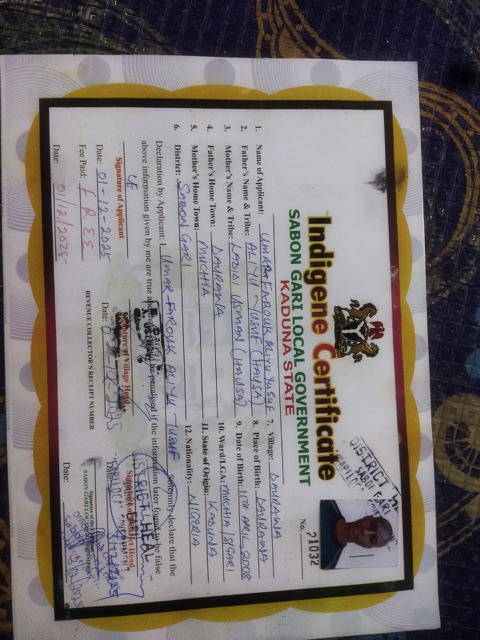 Indigene Certificate
SABON GARI LOCAL GOVERNMENT
KADUNA STATE
No. 21032
1. Name of Applicant: UMAR FAROUK ALIYU YUSUF
2. Father's Name & Tribe: ALIYU YUSUF (HAUSA)
3. Mother's Name & Tribe: LADIDI USMAN (HAUSA)
4. Father's Home Town: DAURAWA
5. Mother's Home Town: MUCHIA
6. District: SABON GARI
7. Village: DAURAWA
8. Place of Birth: DAURAWA
9. Date of Birth: 11TH APRIL 2008
10. Ward/LGA: MUCHIA S/GARI
11. State of Origin: KADUNA
12. Nationality: NIGERIA
Declaration by Applicant: I, UMAR FAROUK ALIYU YUSUF solemnly declare that the
above information given by me are true and be penalised if the information later found to be false
Signature of Applicant
Signature of Village Head
Date: 01-12-2025
Date:
Fee Paid: FREE
REVENUE COLLECTOR'S RECEIPT NUMBER
Date: 01/12/2025
Date:
DISTRICT HEAD
SABON GARI